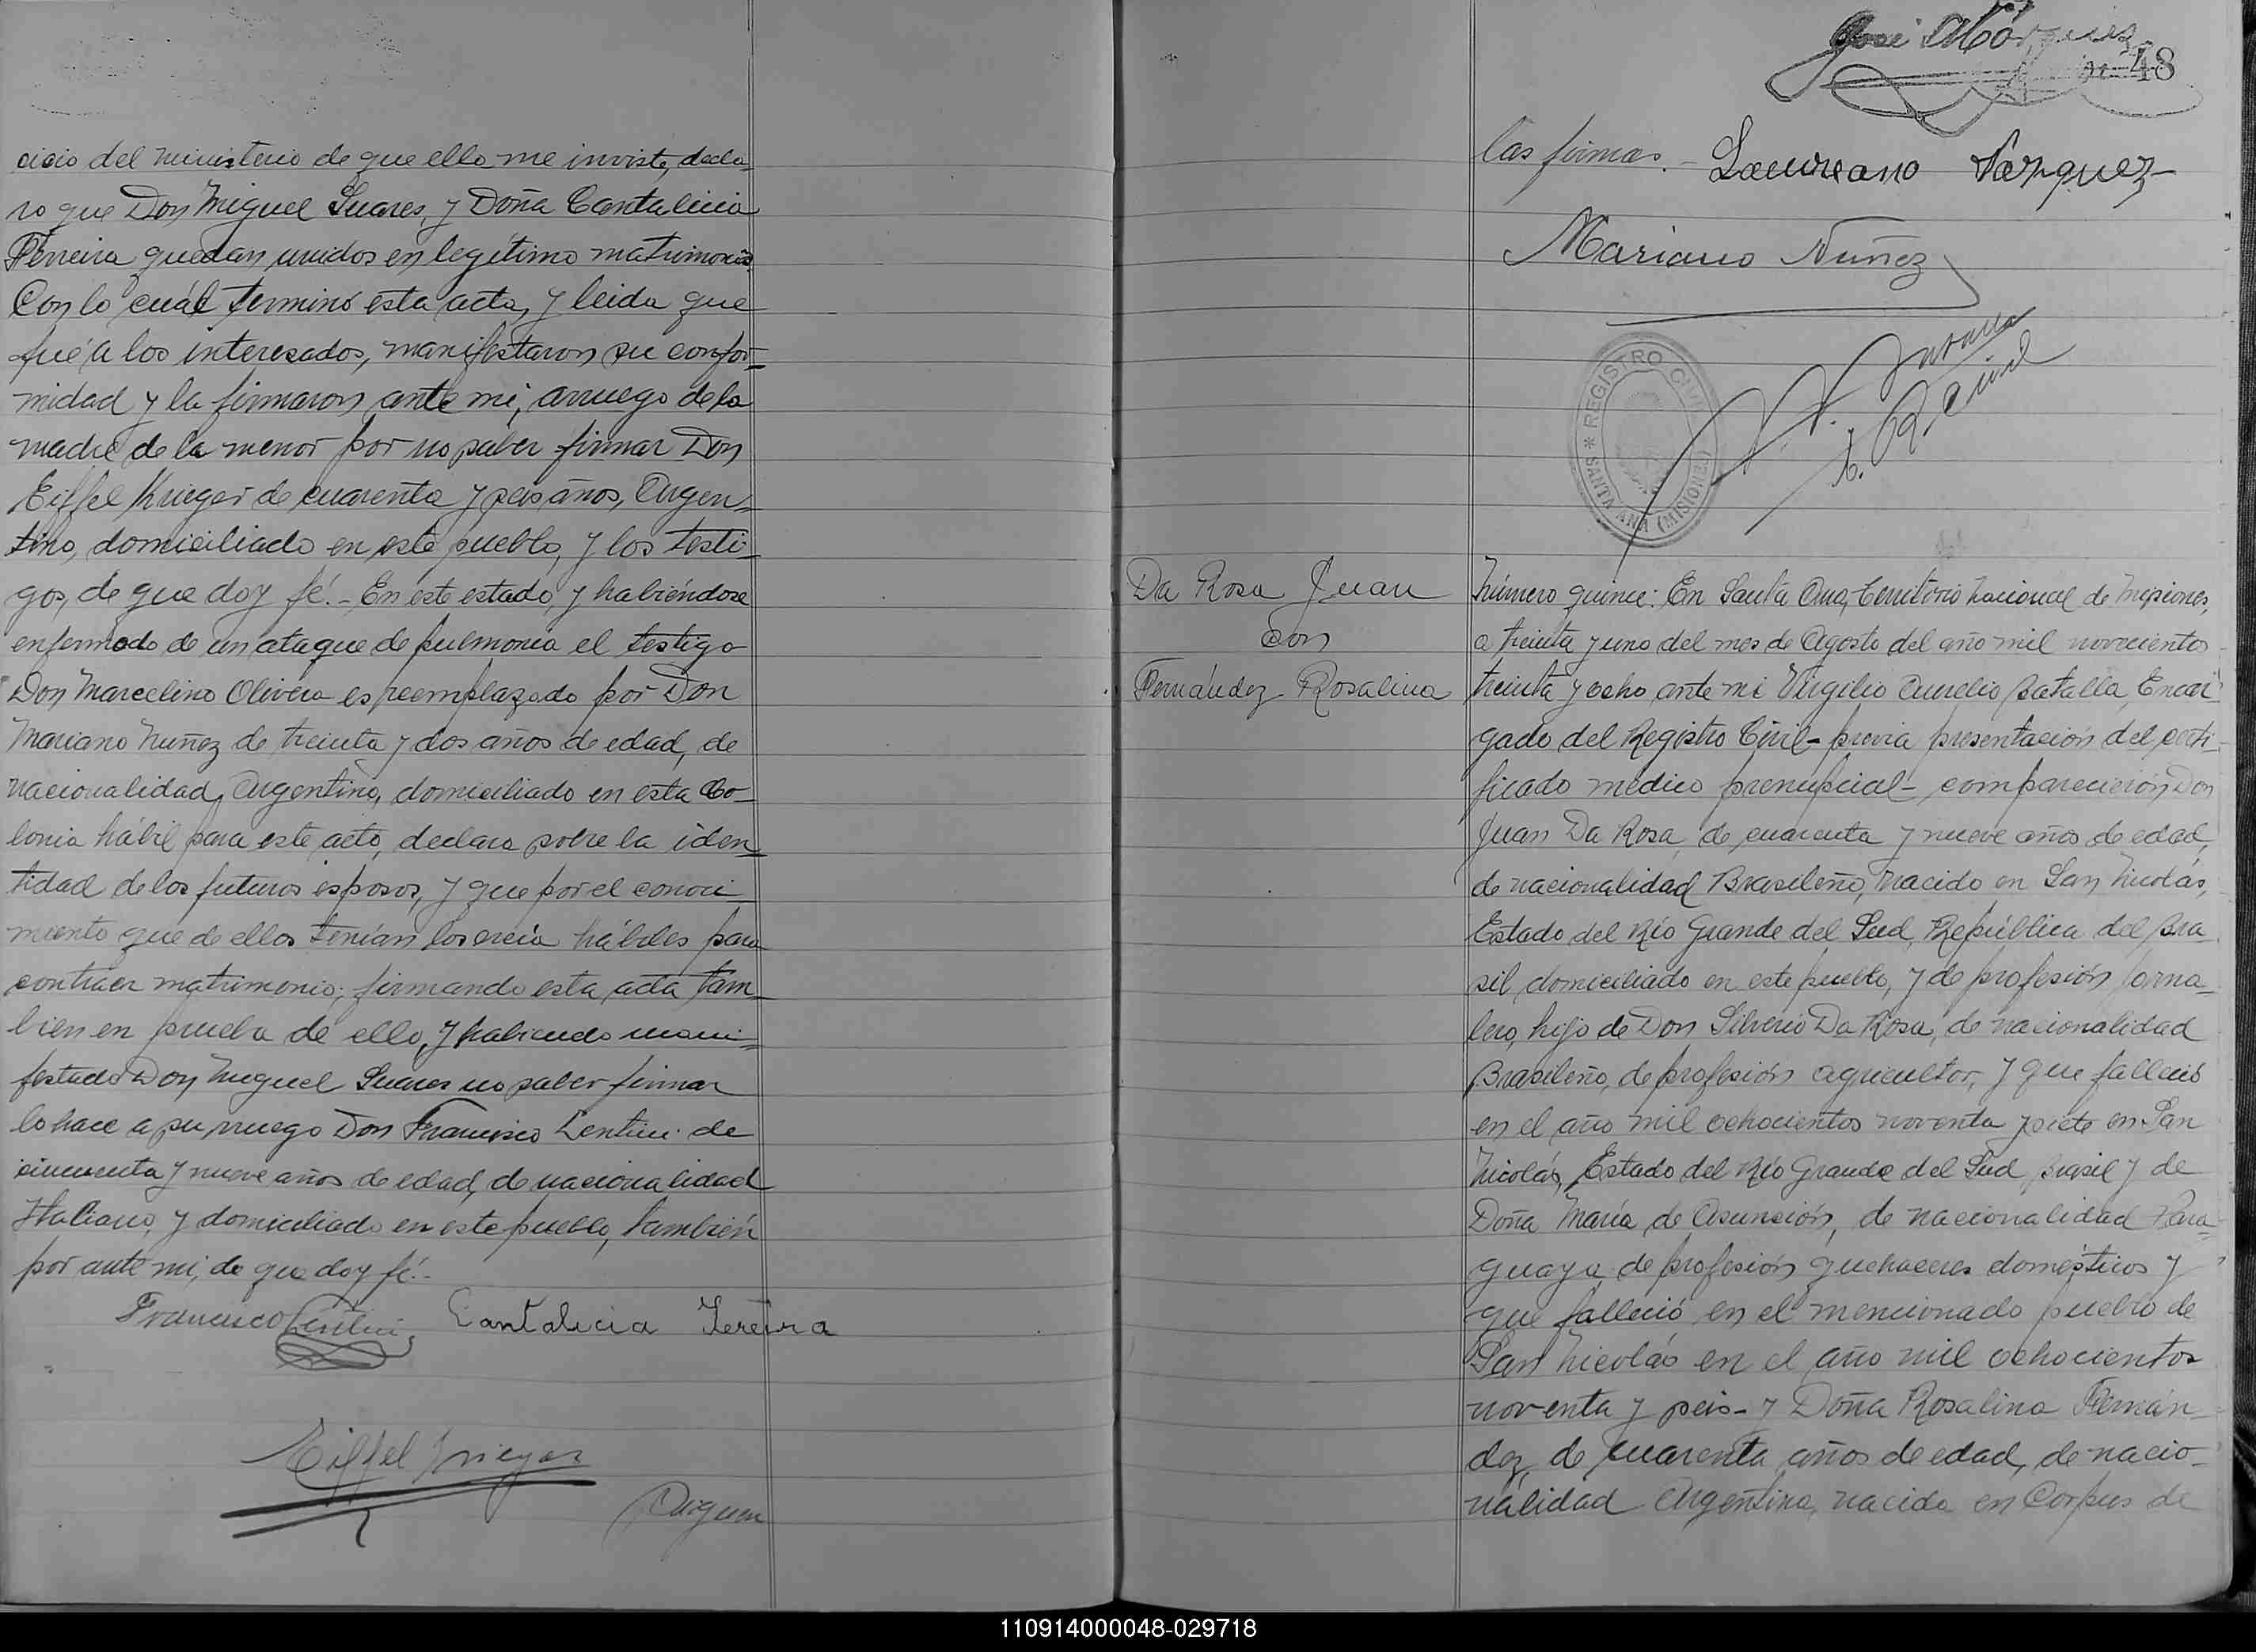 cicio del ministerio de que ella me inviste, decla-
ro que Don Miguel Suares, y Doña Cantalicia
Ferreira quedan unidos en legítimo matrimonio
Con lo cuál terminó esta acta, y leida que
fué a los interesados, manifestaron su confor-
midad y la firmaron ante mi, arruego de la
madre de la menor por no saber firmar Don
Eiffel Krieger de cuarenta y seis años, Argen-
tino, domiciliado en este pueblo, y los testi-
gos, de que doy fé.- En este estado, y habiéndose
enfermado de un ataque de pulmonia el testigo
Don Marcelino Olivera es reemplazado por Don
Mariano Nuñez de treinta y dos años de edad, de
nacionalidad Argentino, domiciliado en esta Co-
lonia hábil para este acto, declara sobre la iden-
tidad de los futuros esposos, y que por el conoci-
miento que de ellos tenían los creía hábiles para
contraer matrimonio; firmando esta acta tam-
bien en prueba de ello, y habiendo mani-
festado Don Miguel Suares no saber firmar
lo hace a su ruego Don Francisco Lentini de
cincuenta y nueve años de edad, de nacionalidad
Italiano, y domiciliado en este pueblo, también
por ante mi, de que doy fé.-
Francisco Lentini Cantalicia Fereira
Eiffel Krieger
José Márquez
48
las firmas.- Laureano Vazquez
Mariano Nuñez
* REGISTRO CIVIL * SANTA ANA (MISIONES)
R. Civil
Da Rosa Juan
con
Fernández Rosalina
Número quince: En Santa Ana, Territorio Nacional de Misiones,
a treinta y uno del mes de Agosto del año mil novecientos
treinta y ocho, ante mi Virgilio Aurelio Batalla, Encar-
gado del Registro Civil - previa presentación del certi-
ficado médico prenupcial - comparecieron Don
Juan Da Rosa, de cuarenta y nueve años de edad,
de nacionalidad Brasileño, nacido en San Nicolás,
Estado del Río Grande del Sud, República del Bra-
sil, domiciliado en este pueblo, y de profesión jorna-
lero, hijo de Don Silverio Da Rosa, de nacionalidad
Brasileño, de profesión agricultor, y que falleció
en el año mil ochocientos noventa y siete en San
Nicolás, Estado del Río Grande del Sud, Brasil y de
Doña María de Asunción, de nacionalidad Para-
guaya, de profesión quehaceres domésticos y
que falleció en el mencionado pueblo de
San Nicolás en el año mil ochocientos
noventa y seis - y Doña Rosalina Fernán-
dez, de cuarenta años de edad, de nacio-
nalidad Argentina, nacida en Corpus de
110914000048-029718